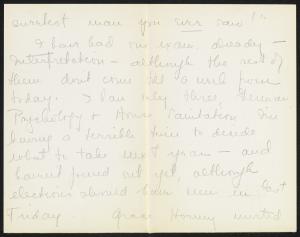 surliest man you ever saw!"
I have had one exam. already –
Interpretation – although the rest of
them don't come till a week from
today. I have only three, German,
Psychology & House Sanitation I'm
having a terrible time to decide
what to take next year – and
haven't found out yet, although
elections should have been in last
Friday. Grace Horney invited